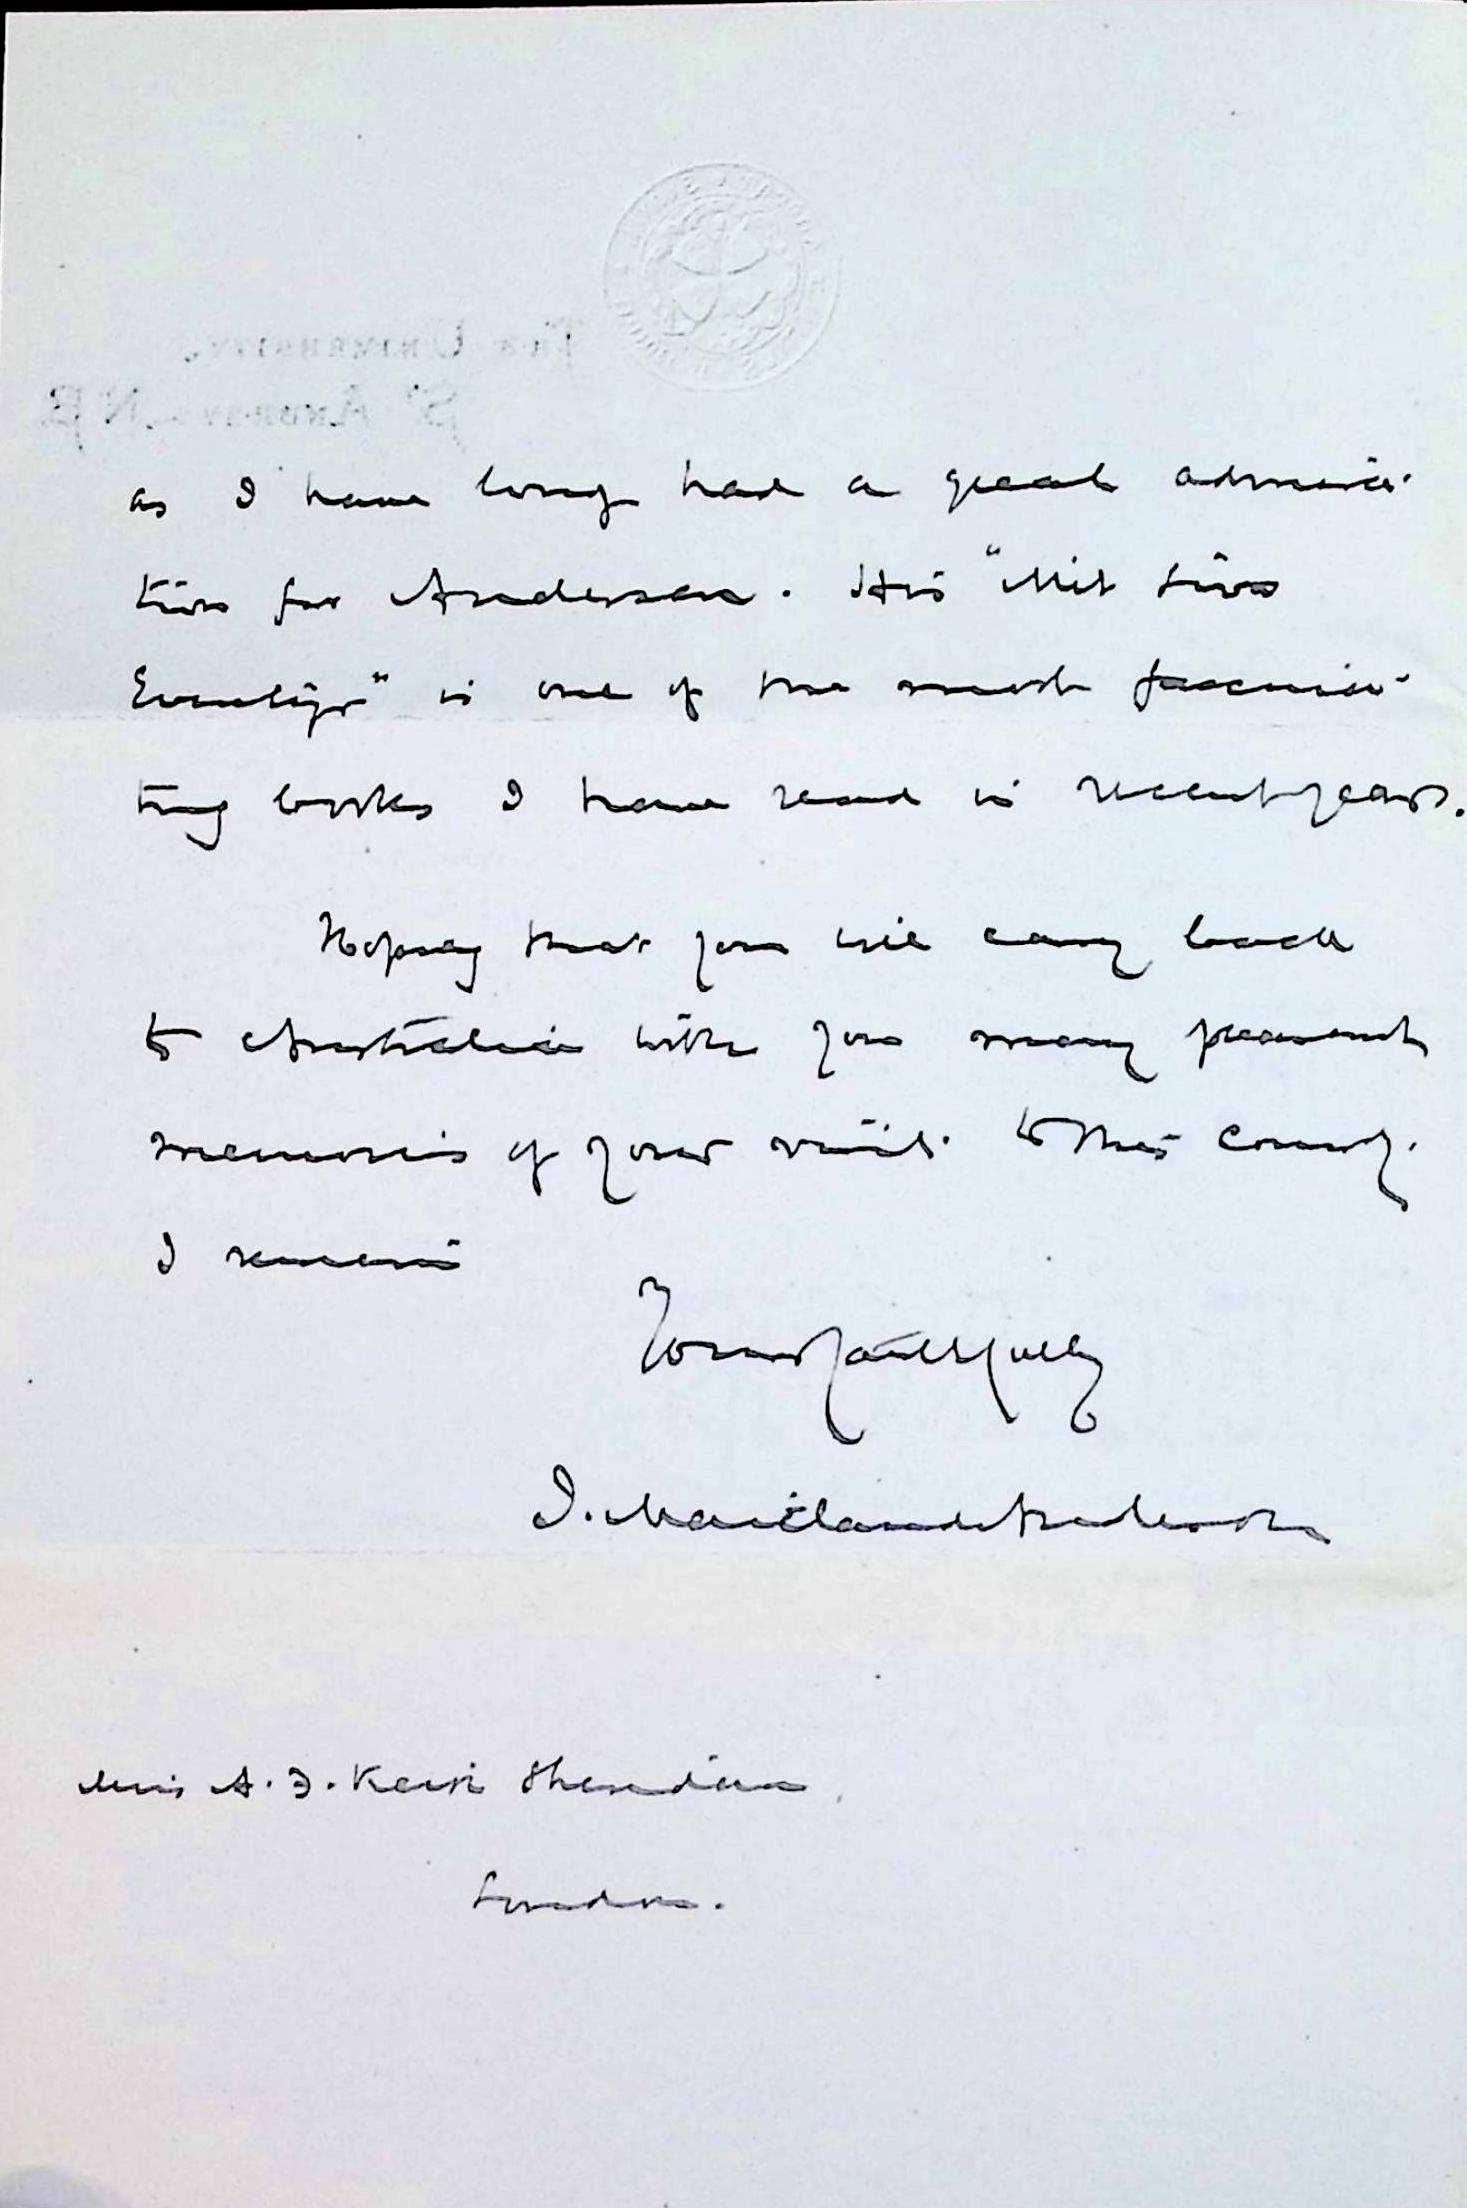 The University,
St Andrews, N.B.
as I have long had a great admira-
tion for Andersen. His "Mit Livs
Eventyr" is one of the most fascina-
ting books I have read in recent years.
Hoping that you will carry back
to Australia with you many pleasant
memories of your visit to this country.
I remain
Yours faithfully
J. Maitland Anderson
Miss A. J. Keir Sheridan,
London.